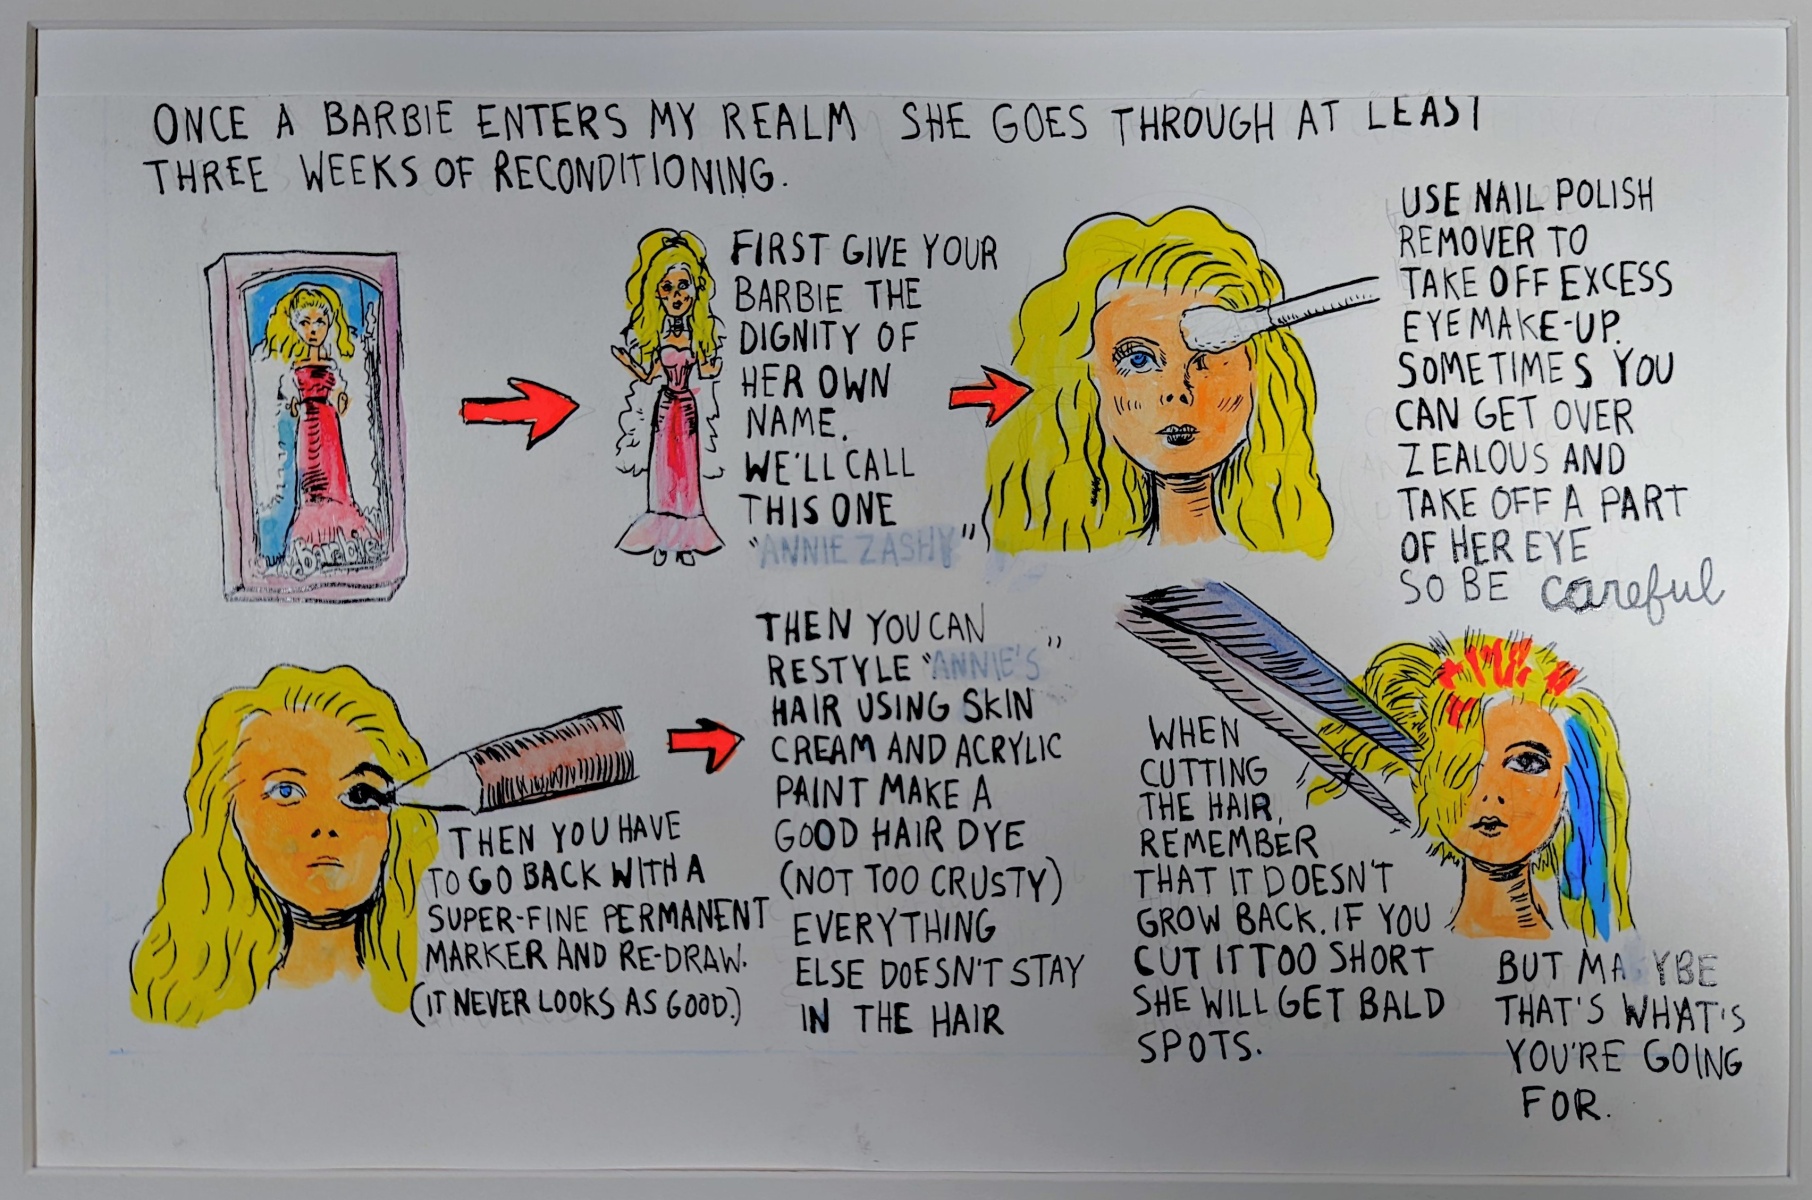 ONCE A BARBIE ENTERS MY REALM SHE GOES THROUGH AT LEAST
THREE WEEKS OF RECONDITIONING.
Barbie
FIRST GIVE YOUR
BARBIE THE
DIGNITY OF
HER OWN
NAME.
WE'LL CALL
THIS ONE
"ANNIE ZASHY"
USE NAIL POLISH
REMOVER TO
TAKE OFF EXCESS
EYE MAKE-UP.
SOMETIMES YOU
CAN GET OVER
ZEALOUS AND
TAKE OFF A PART
OF HER EYE
SO BE careful
THEN YOU HAVE
TO GO BACK WITH A
SUPER-FINE PERMANENT
MARKER AND RE-DRAW.
(IT NEVER LOOKS AS GOOD.)
THEN YOU CAN
RESTYLE "ANNIE'S"
HAIR USING SKIN
CREAM AND ACRYLIC
PAINT MAKE A
GOOD HAIR DYE
(NOT TOO CRUSTY)
EVERYTHING
ELSE DOESN'T STAY
IN THE HAIR
WHEN
CUTTING
THE HAIR,
REMEMBER
THAT IT DOESN'T
GROW BACK. IF YOU
CUT IT TOO SHORT
SHE WILL GET BALD
SPOTS.
BUT MAYBE
THAT'S WHAT'S
YOU'RE GOING
FOR.